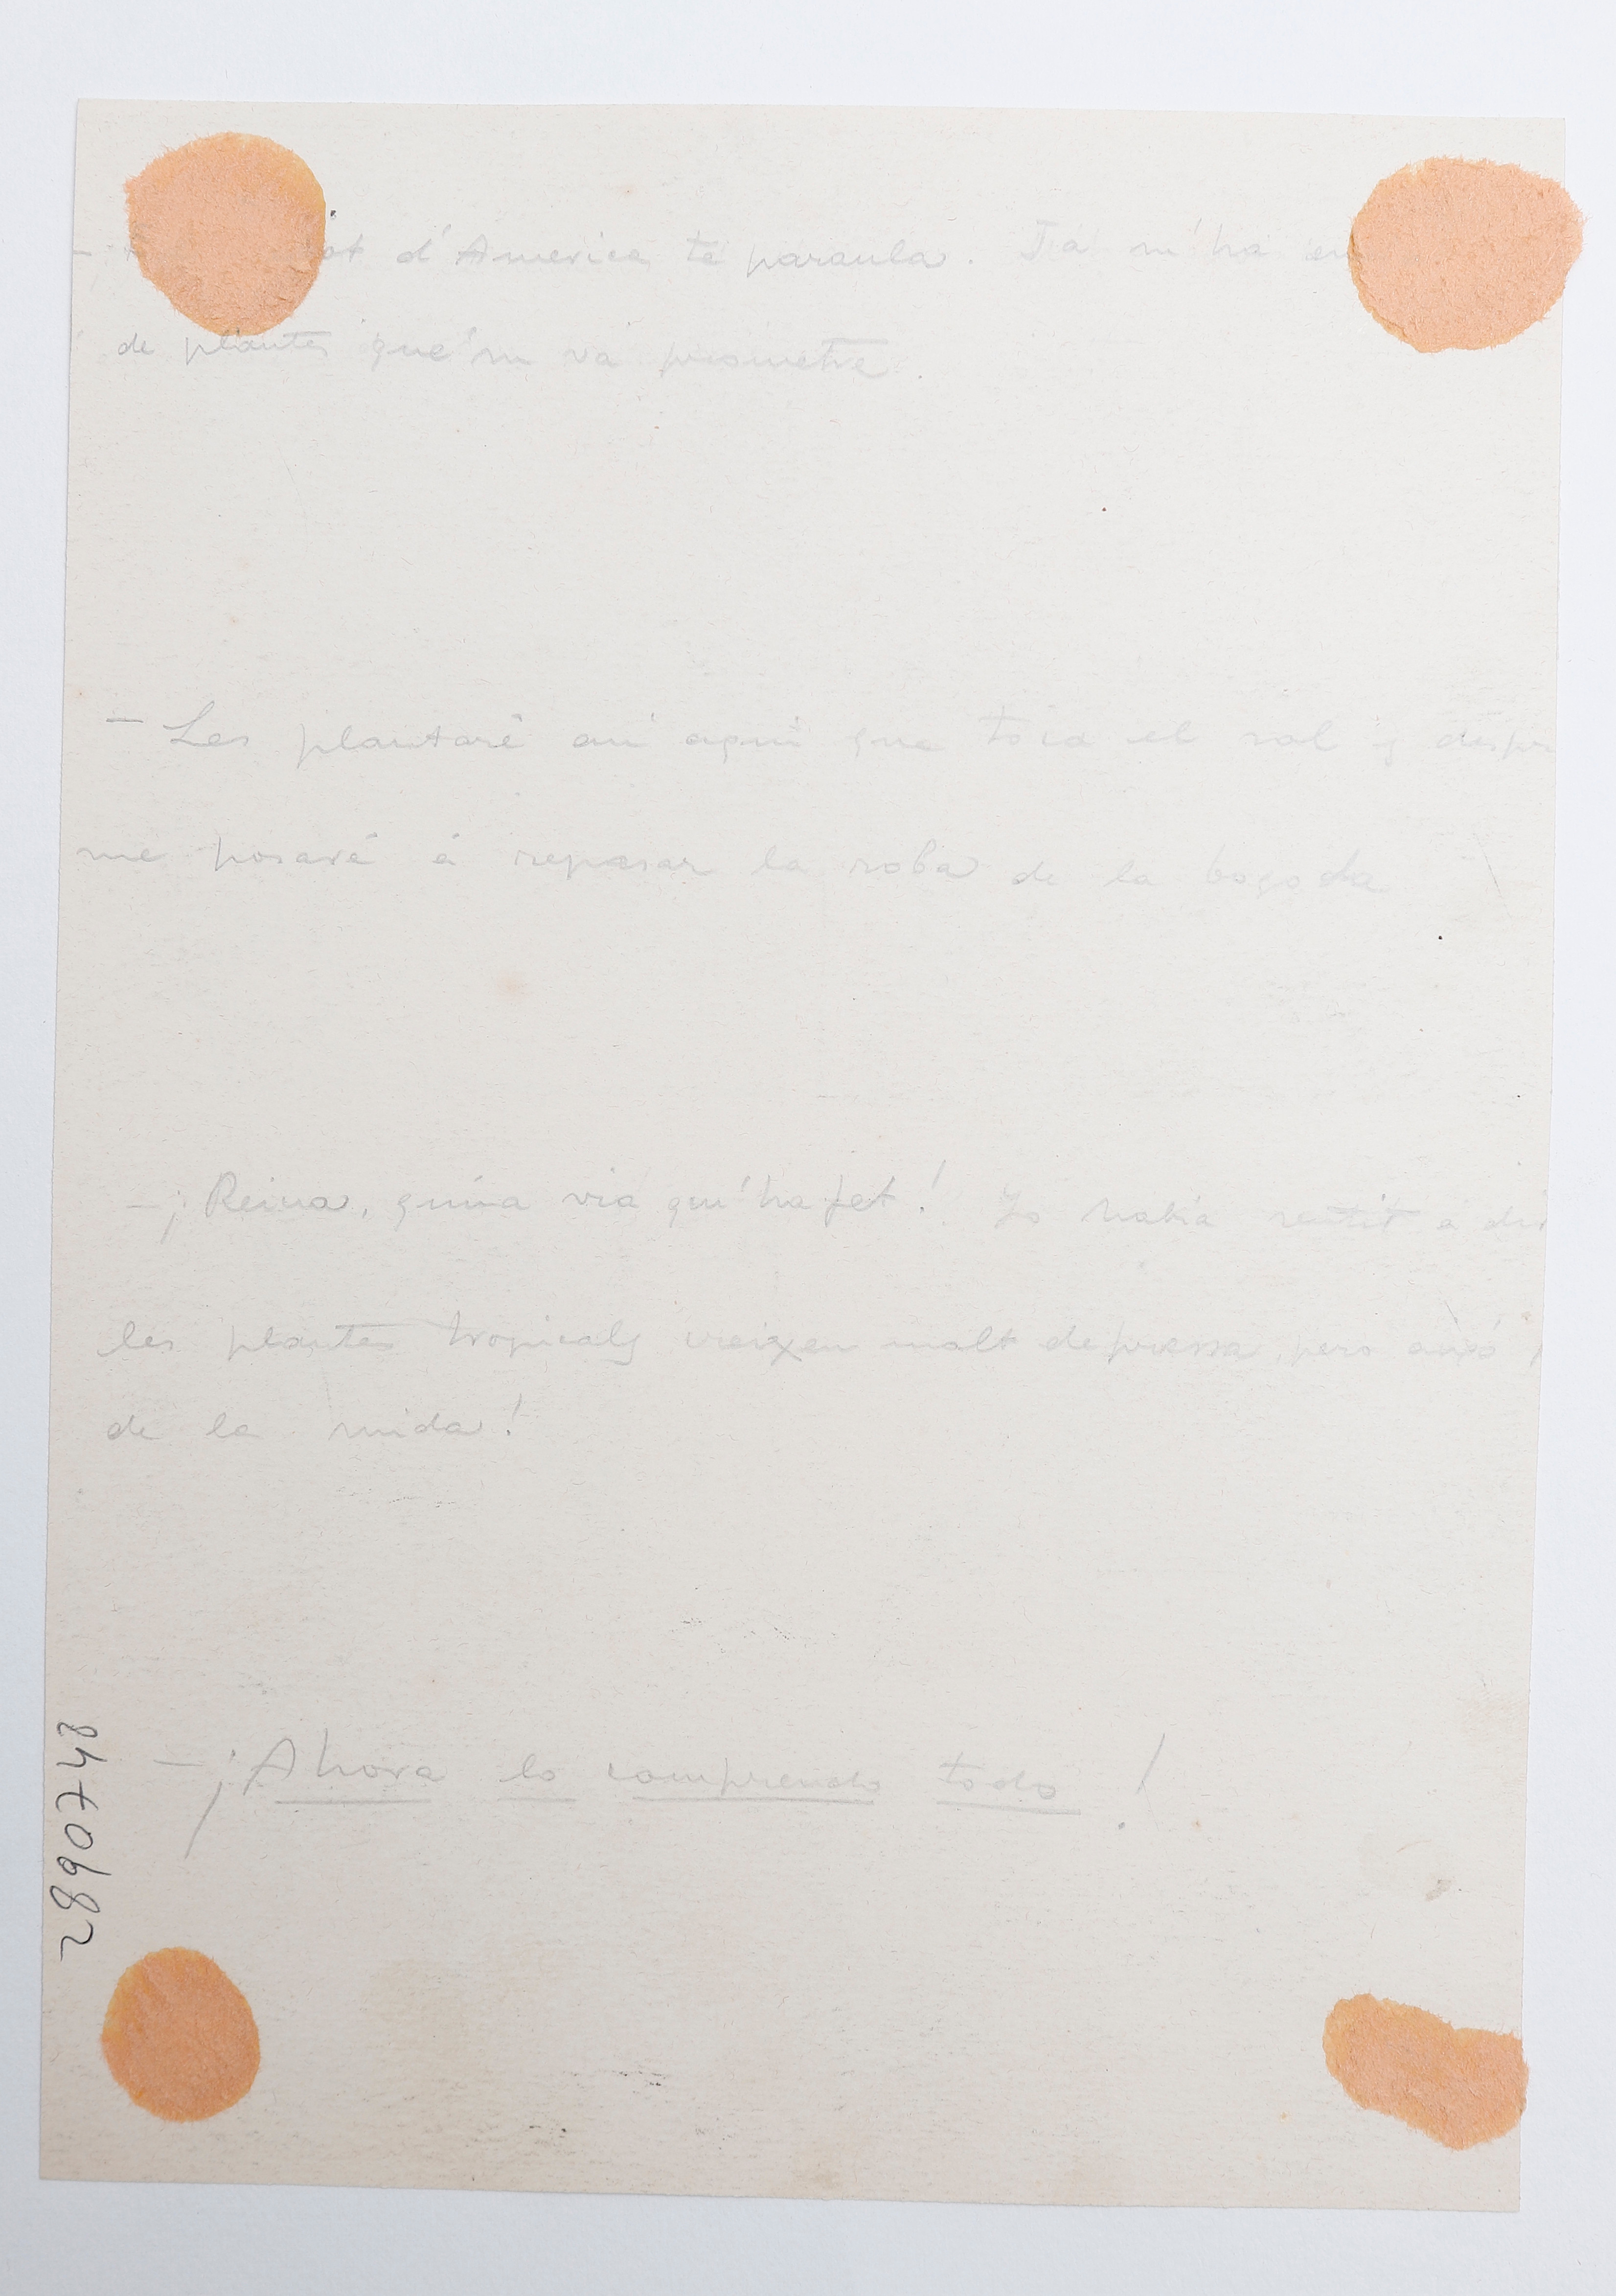 d'America te paraula. Ja m'ha
de plantes que'm va prometre.
— Les plantaré aui aqui que toca el sol y
me posaré á repasar la roba de la bogada
— ¡Reina, quina via qu'ha fet! Jo habia sentit a
les plantes tropicals creixen molt depressa, pero aixó
de la mida!
— ¡Ahora lo comprendo todo!
2890748